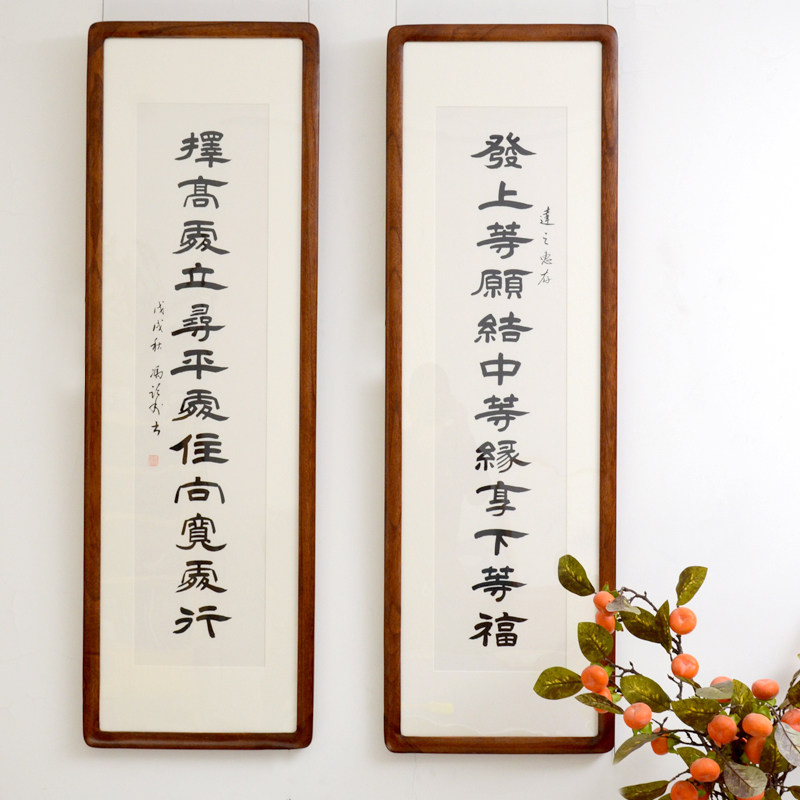 發上等願結中等緣享下等福
達之惠存
擇高處立尋平處住向寬處行
戊戌秋 馮